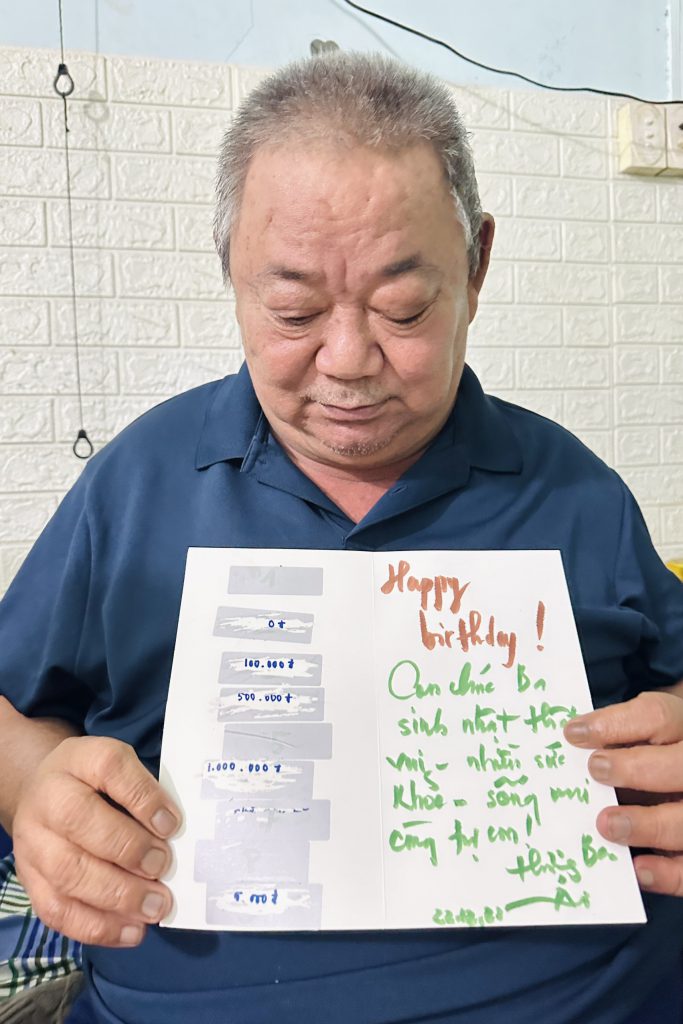 0đ
100.000đ
500.000đ
1.000.000đ
Happy
birthday!
Con chúc Ba
sinh nhật
vui, nhiều sức
khỏe - sống
cùng tụi con!
Thương Ba.